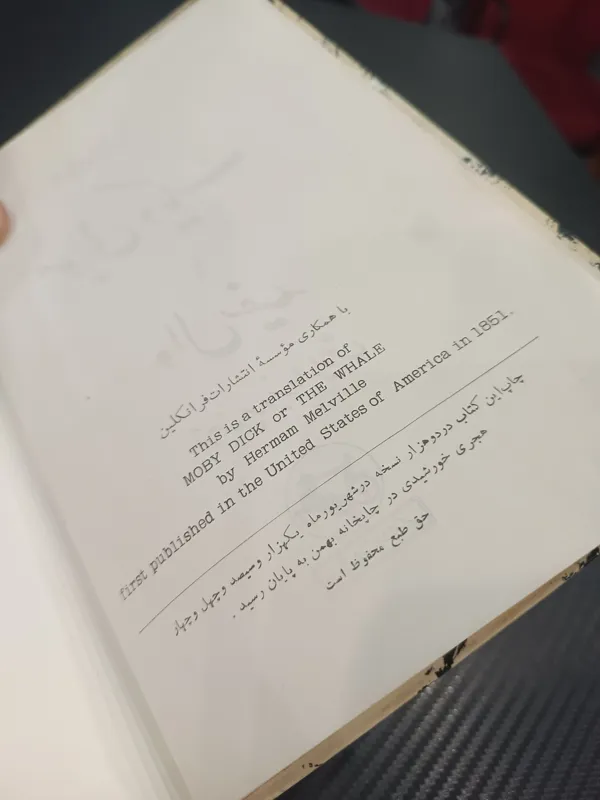 با همکاری مؤسسهٔ انتشارات فرانکلین
This is a translation of
MOBY DICK or THE WHALE
by Hermam Melville
first published in the United States of America in 1851.
چاپ این کتاب در دو هزار نسخه در شهریورماه یکهزار وسیصد وچهل وچهار
هجری خورشیدی در چاپخانه بهمن به پایان رسید .
حق طبع محفوظ است